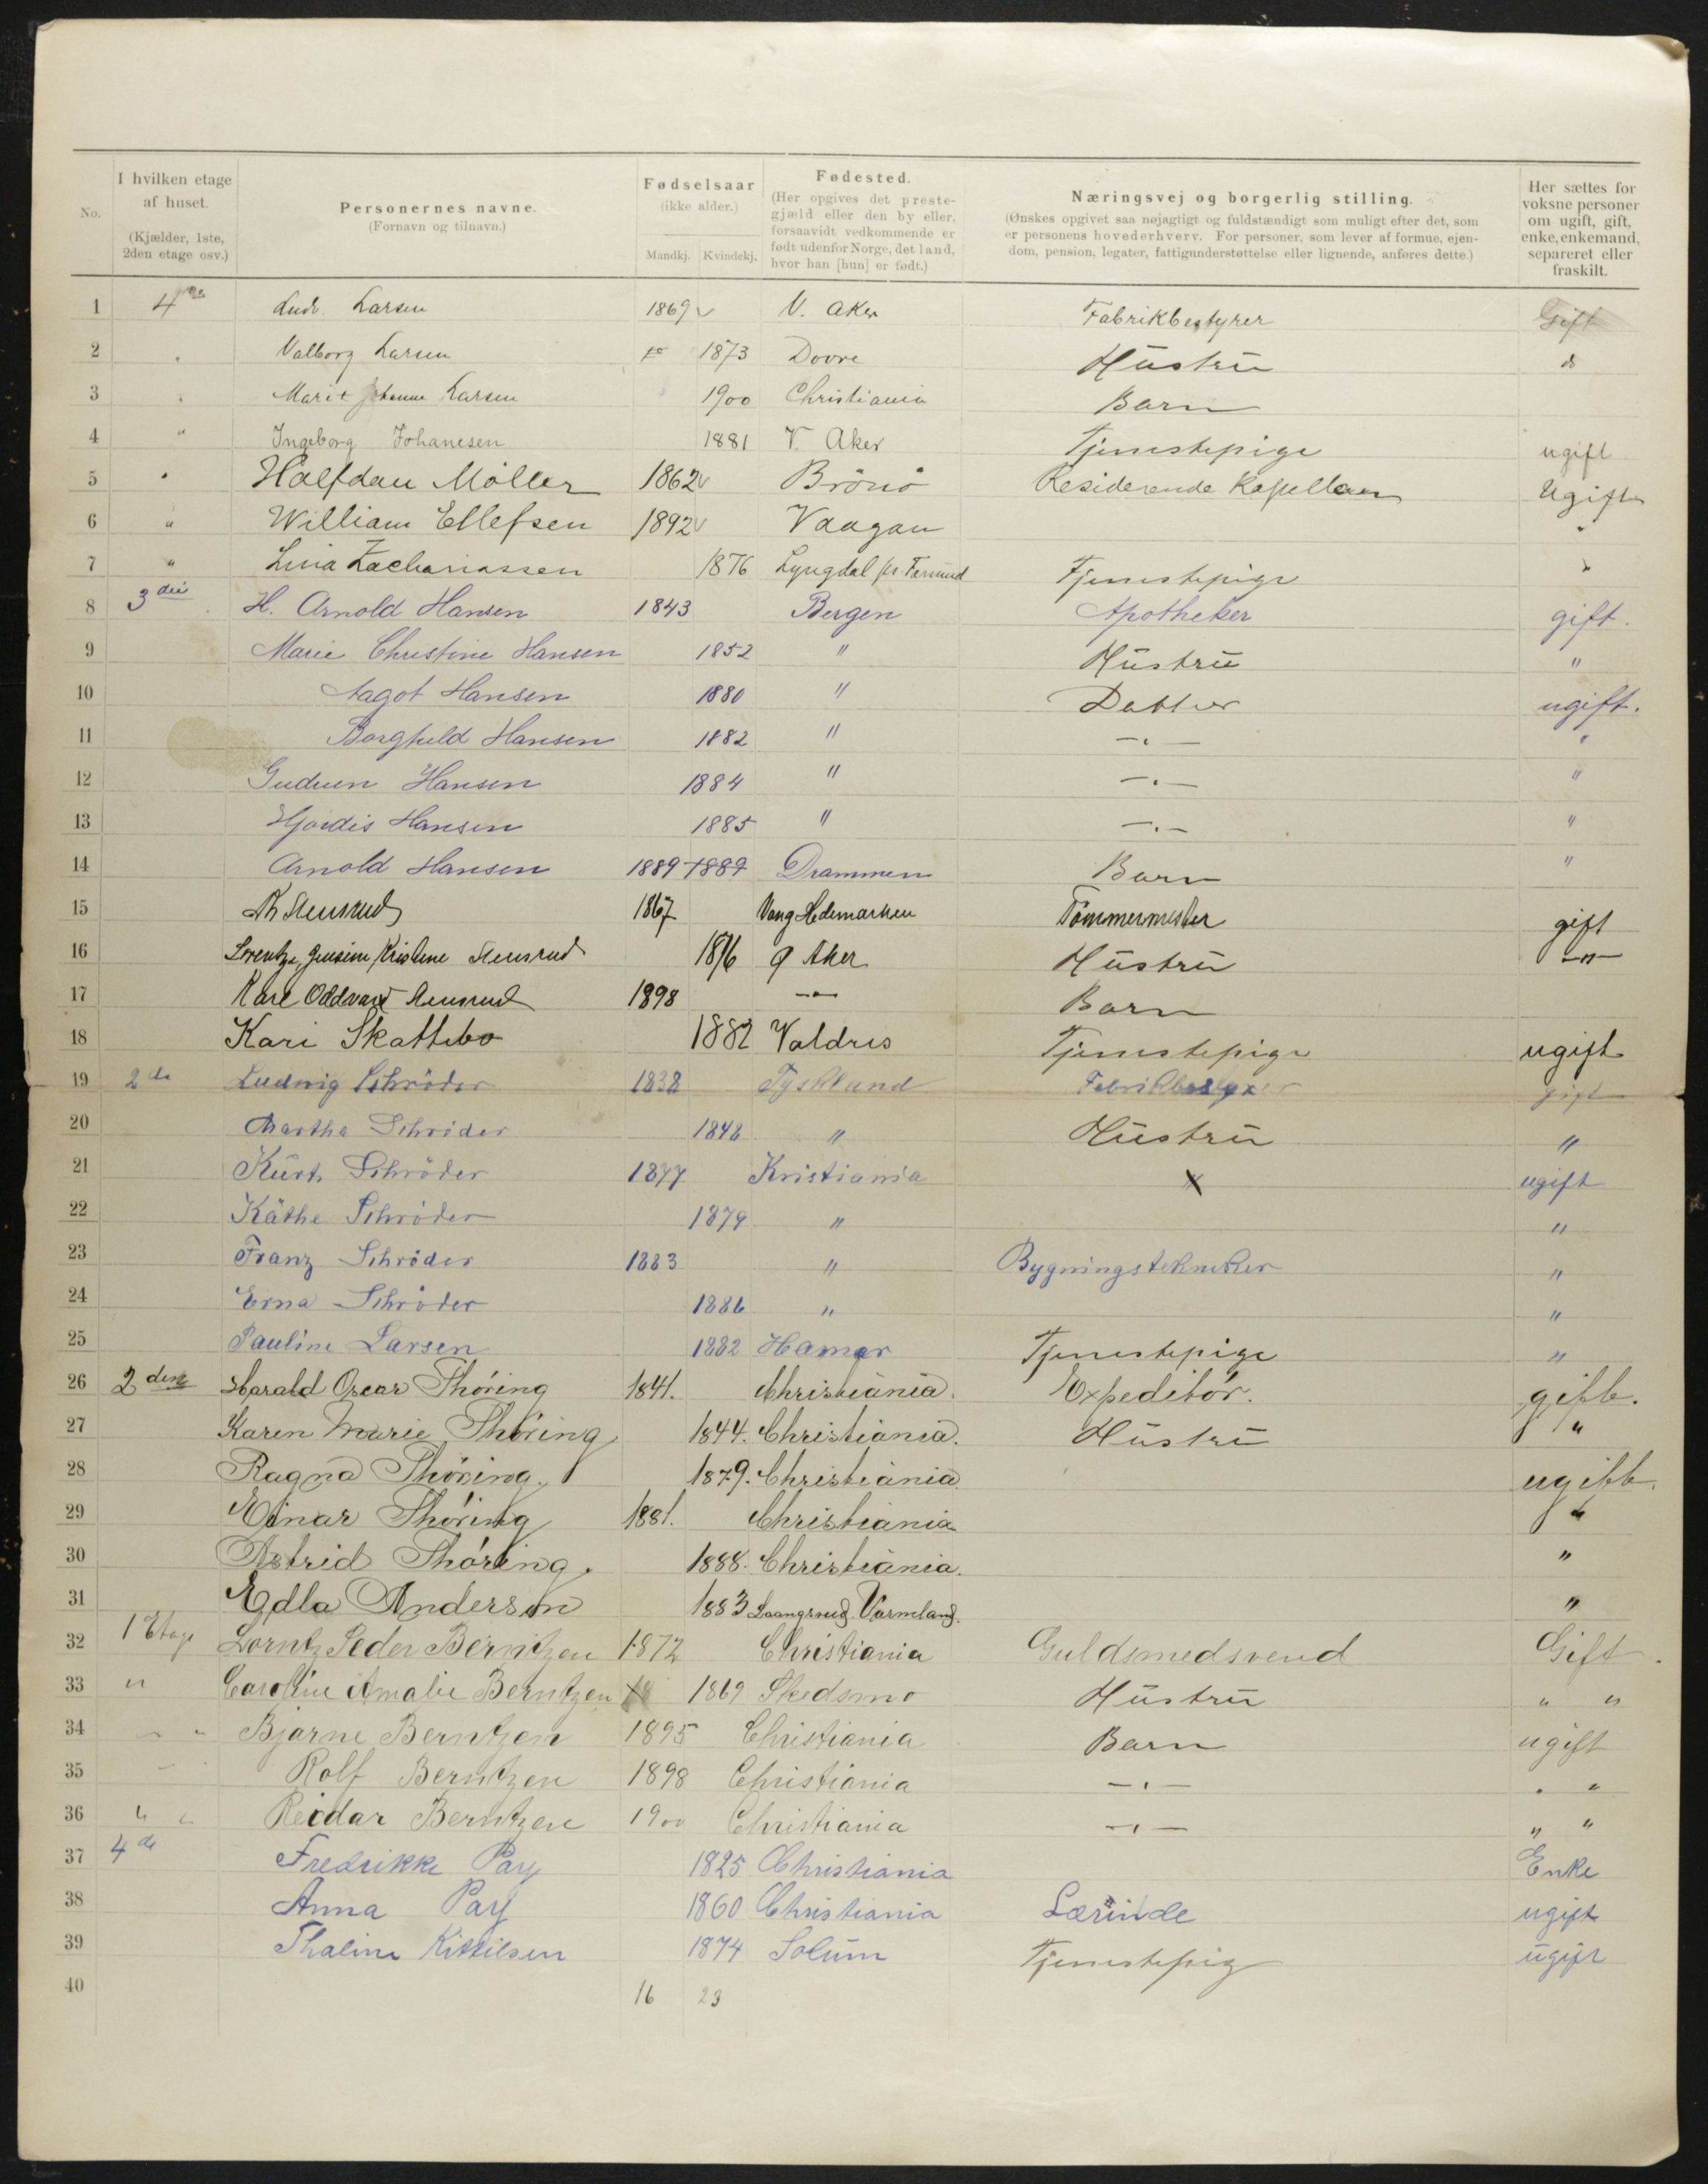 No.
I hvilken etage af huset. (Kjælder, 1ste, 2den etage osv.)
Personernes navne. (Fornavn og tilnavn.)
Fødselsaar (ikke alder.) Mandkj. Kvindekj.
Fødested. (Her opgives det prestegjæld eller den by eller, forsaavidt vedkommende er født udenfor Norge, det land, hvor han [hun] er født.)
Næringsvej og borgerlig stilling. (Ønskes opgivet saa nøjagtigt og fuldstændigt som muligt efter det, som er personens hovederhverv. For personer, som lever af formue, ejendom, pension, legater, fattigunderstøttelse eller lignende, anføres dette.)
Her sættes for voksne personer om ugift, gift, enke, enkemand, separeret eller fraskilt.
1 4 Ludv. Larsen 1869 V. Aker Fabrikbestyrer Gift
2 Valborg Larsen 1873 Dovre Hustru do
3 Marit Johanne Larsen 1900 Christiania Barn
4 " Ingeborg Johanesen 1881 V. Aker Tjenestepige ugift
5 " Halfdan Möller 1862 Brönö Residerende Kapellan Ugift
6 " William Ellefsen 1892 Vaagan "
7 " Lina Zachariassen 1876 Lyngdal pr Farsund Tjenestepige "
8 3die H. Arnold Hansen 1843 Bergen Apotheker gift.
9 Marie Christine Hansen 1852 " Hustru "
10 Aagot Hansen 1880 " Datter ugift.
11 Borghild Hansen 1882 " -"- "
12 Gudrun Hansen 1884 " -"- "
13 Hjørdis Hansen 1885 " -"- "
14 Arnold Hansen 1889 1889 Drammen Barn "
15 1867 Vang Hedemarken Tömmermester gift
16 Kristine 1876 Ø Aker Hustru -"-
17 Kare Oddvard 1898 -"- Barn
18 Kari Skattebo 1882 Valdris Tjenestepige ugift
19 2de Ludwig Schröder 1838 Tyskland Fabrikbestyrer gift
20 Martha Schröder 1848 " Hustru "
21 Kurt Schröder 1877 Kristiania ugift
22 Käthe Schröder 1879 " "
23 Franz Schröder 1883 " Bygningstekniker "
24 Erna Schröder 1886 " "
25 Pauline Larsen 1882 Hamar Tjenestepige "
26 2den Harald Oscar Thöring 1841. Christiania. Expeditör. gift.
27 Karen Marie Thöring 1844. Christiania. Hustru "
28 Ragna Thöring. 1879. Christiania ugift.
29 Einar Thöring 1881. Christiania "
30 Astrid Thöring. 1888. Christiania. "
31 Edla Anderson 1883 Varmland. "
32 1 Etage Lorntz Peder Berntzen 1872 Christiania Guldsmedsvend Gift.
33 " Caroline Amalie Berntzen 1869 Skedsmo Hustru " "
34 " Bjarne Berntzen 1895 Christiania Barn ugift
35 Rolf Berntzen 1898 Christiania -"- " "
36 " " Reidar Berntzen 1900 Christiania -"- " "
37 4de Fredrikke Pay 1825 Christiania Enke
38 Anna Pay 1860 Christiania Lærinde ugift
39 Thaline Kittilsen 1874 Solum Tjenestepig ugift
40 16 23